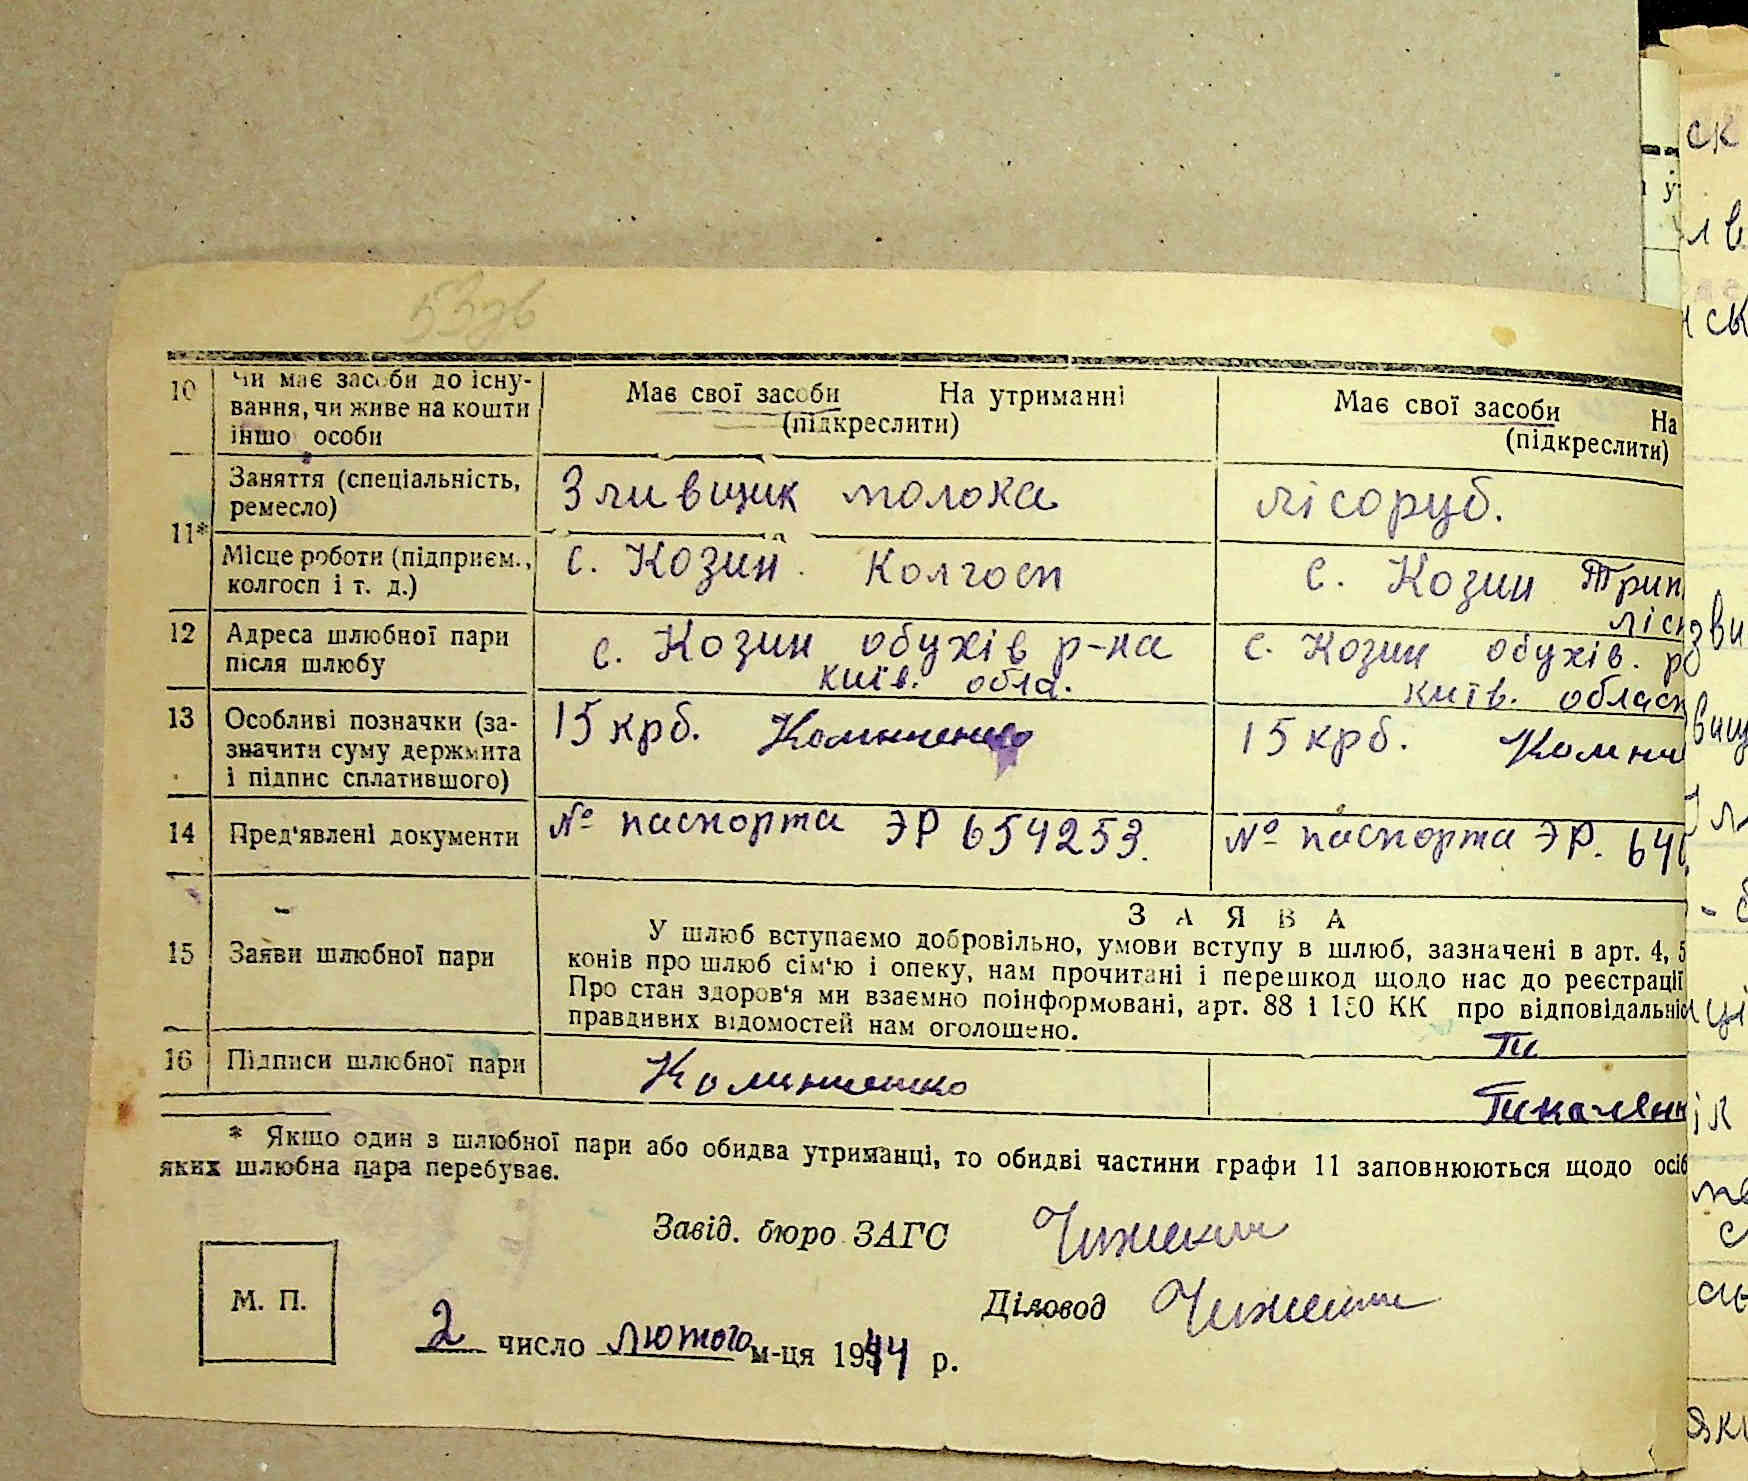 53зв
10 Чи має засоби до існу-
вання, чи живе на кошти
іншо особи
Має свої засоби На утриманні
(підкреслити)
Має свої засоби На
(підкреслити)
11*
Заняття (спеціальність,
ремесло)
Зливщик молока
лісоруб.
Місце роботи (підприєм.,
колгосп і т. д.)
с. Козин. Колгосп
с. Козин Трип
ліс
12 Адреса шлюбної пари
після шлюбу
с. Козин обухів р-на
київ. обла.
с. Козин обухів. р
київ. област
13 Особливі позначки (за-
значити суму держмита
і підпис сплатившого)
15 крб.
15 крб.
14 Пред'явлені документи
№ паспорта ЭР 654253.
№ паспорта ЭР. 64
15 Заяви шлюбної пари
ЗАЯВА
У шлюб вступаємо добровільно, умови вступу в шлюб, зазначені в арт. 4, 5
конів про шлюб сім'ю і опеку, нам прочитані і перешкод щодо нас до реєстрації
Про стан здоров'я ми взаємно поінформовані, арт. 88 і 150 КК про відповідальніс
правдивих відомостей нам оголошено.
16 Підписи шлюбної пари
* Якшо один з шлюбної пари або обидва утриманці, то обидві частини графи 11 заповнюються щодо осіб
яких шлюбна пара перебуває.
Завід. бюро ЗАГС
Діловод
М. П.
2 число лютого м-ця 1944 р.